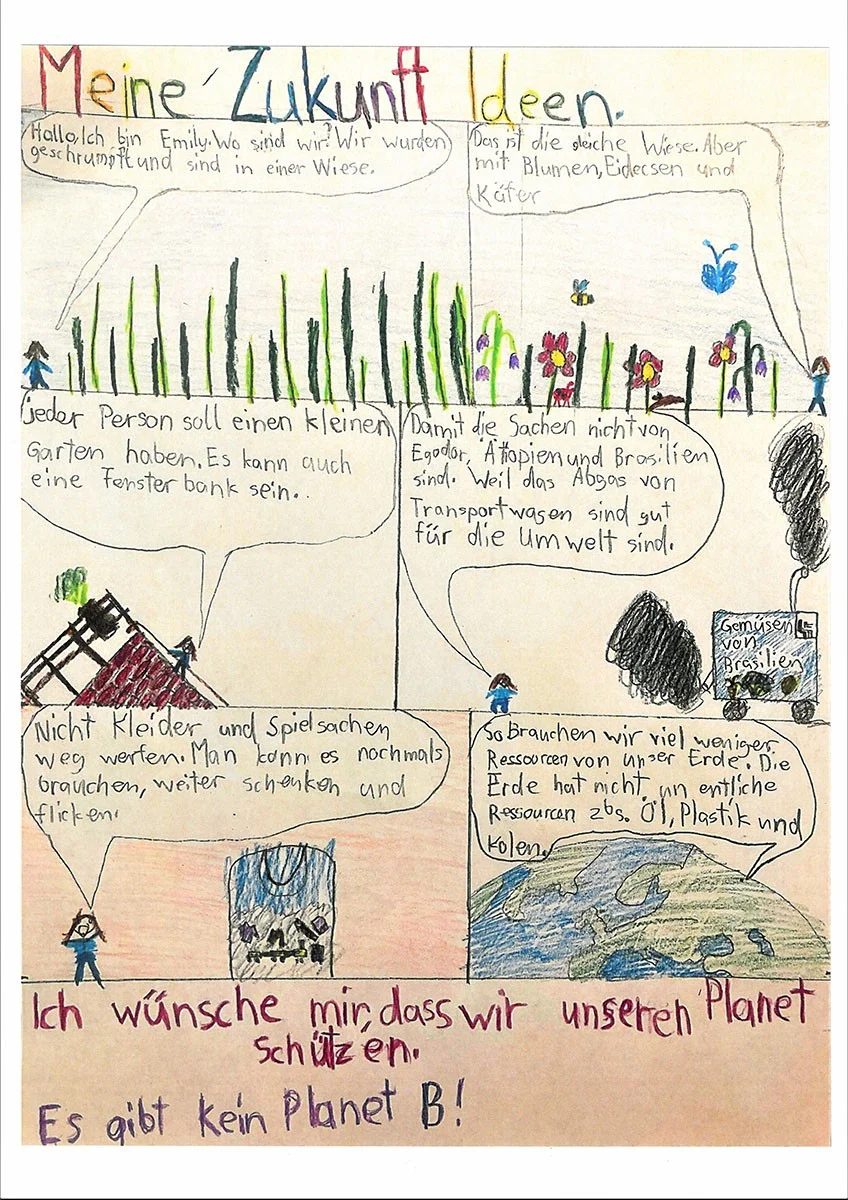 Meine Zukunft Ideen.
Hallo, Ich bin Emily. Wo sind wir? Wir wurden
geschrumpft und sind in einer Wiese.
Das ist die gleiche Wiese. Aber
mit Blumen, Eidecsen und
Käfer
jeder Person soll einen kleinen
Garten haben. Es kann auch
eine Fenster bank sein..
Damit die Sachen nicht von
Egodor, Ättopien und Brasilien
sind. Weil das Abgas von
Transportwagen sind gut
für die Umwelt sind.
Gemüsen
von
Brasilien
Nicht Kleider und Spielsachen
weg werfen. Man kann es nochmals
brauchen, weiter schenken und
flicken.
So Brauchen wir viel weniger
Ressourcen von unser Erde. Die
Erde hat nicht un entliche
Ressourcen zbs. Öl, Plastik und
Kolen.
Ich wünsche mir, dass wir unseren Planet
schützen.
Es gibt kein Planet B!